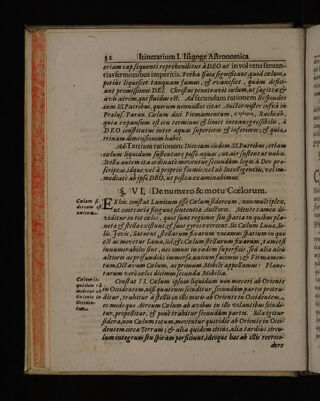 32 Itinerarium I. Isagoge Astronomica
etiam cap. sequenti reprehenditur à DEO ut involvens senten-
tias sermonibus imperitis. Verba Isaiæ significant, quod cœlum,
potiùs liquescet tanquam fumus, & evanescet, quàm defici-
ant promissiones DEI. Christus penetravit cœlum, ut sagitta &
avis aërem, qui fluidus est. Ad secundam rationem Respondeo
cum SS. Patribus, quorum nonnullos citat Auctor noster infrà in
Prælus. Param. Cœlum dici Firmamentum, Rachiah,
quia expansum est ceu terminus & limes intransgressibilis, à
DEO constitutus inter aquas superiores & inferiores; & quia
trinam dimensionem habet.
Ad Tertiam rationem Dico cum iisdem SS. Patribus, etiam
cœlum liquidum sustentare posse aquas, ut aër sustentat nubes.
Stellæ autem ita ordinatè moventur secundùm leges à Deo præ-
scriptas, idque vel à propriis formis, vel ab Intelligentiis, vel im-
mediatè ab ipso DEO, ut postea examinabimus.
§. VI. De numero & motu Cœlorum.
Cœlum si-
dereum est
unicum.
EX his constat I. unicum esse Cœlum sidereum, non multiplex,
ut contrariè fingunt sententiæ Auctores. Mente tamen di-
viditur in tot cœlos, quot sunt regiones seu spatia in quibus pla-
netæ & stellæ existunt, & suos gyros exercent. Sic Cœlum Lunæ, So-
lis, Jovis, Saturni, stellarum fixarum vocamus spatium in quo
est ac movetur Luna, Sol, &c. Cœlum stellarum fixarum, tametsi
innumerabilis sint, nec omnes in eadem superficie, sed aliæ aliis
altiores ac profundiùs immersæ, unicum facimus; & Firmamen-
tum, Octavum Cœlum, ac primum Mobile appellamus: Plane-
tarum verò cœlos dicimus secunda Mobilia.
Cœlum li-
quidum an
moveatur ab
Oriente in
Occiden-
tem.
Constat II. Cœlum ipsum liquidum non moveri ab Oriente
in Occidentem, nisi quatenus scinditur secundùm partes protru-
ditur, trahitur à stellis in illo motis ab Oriente in Occidentem,
eo modo quo aëreum Cœlum ab avibus in illo volitantibus scindi-
tur, propellitur, & ponè trahitur secundùm partes. Sola igitur
sidera, non Cœlum totum, moventur quotidie ab Oriente in Occi-
dentem circa Terram; & alia quidem citiùs, alia tardiùs circu-
lum integrum seu spiram perficiunt, ideoque hæc ab illis retroce-
dere